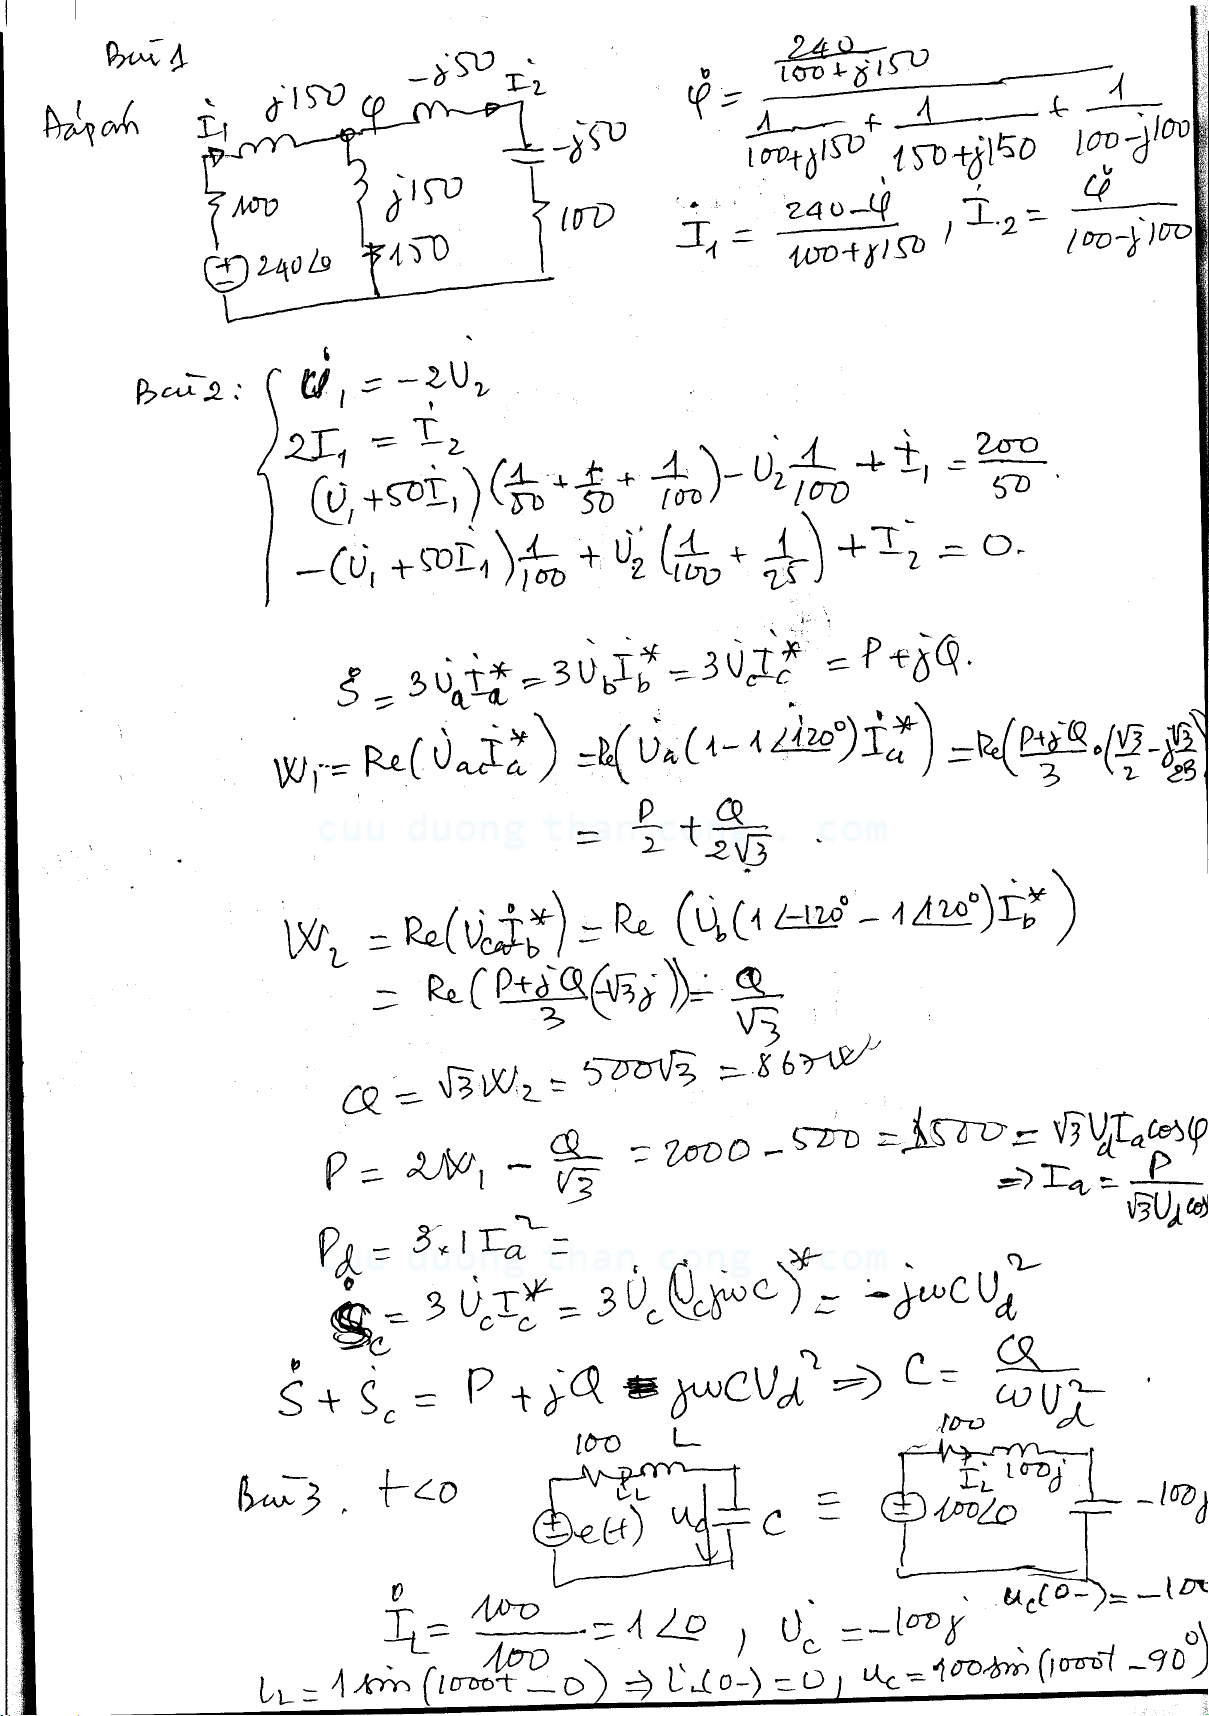 Bài 1
Đáp án
İ₁ j150 φ -j50 İ₂
100 j150 -j50
240∠0 150 100
φ̇ = (240/(100+j150)) / (1/(100+j150) + 1/(150+j150) + 1/(100-j100))
İ₁ = (240-φ̇)/(100+j150), İ₂ = φ̇/(100-j100)
Bài 2: { U̇₁ = -2U̇₂
2İ₁ = İ₂
(U̇₁+50İ₁)(1/50 + 1/50 + 1/100) - U̇₂ 1/100 + İ₁ = 200/50.
-(U̇₁+50İ₁) 1/100 + U̇₂(1/100 + 1/25) + İ₂ = 0.
Ṡ = 3U̇aİa* = 3U̇bİb* = 3U̇cİc* = P+jQ.
W₁ = Re(U̇acİa*) = Re(U̇a(1-1∠120°)İa*) = Re((P+jQ)/3 · (√3/2 - j√3/23)
= P/2 + Q/(2√3).
cuu duong than cong . com
W₂ = Re(U̇caİb*) = Re(U̇b(1∠-120° - 1∠120°)İb*)
= Re((P+jQ)/3 (-√3j)) = Q/√3
Q = √3W₂ = 500√3 = 867
P = 2W₁ - Q/√3 = 2000 - 500 = 1500 = √3UdIacosφ
=> Ia = P/(√3Ud cos
Pd = 3×1Ia² =
cuu duong than cong . com
Ṡc = 3U̇cİc* = 3U̇c(U̇cjωC)* = -jωCUd²
Ṡ + Ṡc = P + jQ - jωCUd² => C = Q/(ωUd²).
Bài 3. t<0 100 L 100 100j
iL İL
e(t) ud C ≡ 100∠0 -100j
İL = 100/100 = 1∠0, U̇c = -100j uc(0-) = -100
iL = 1sin(1000t - 0) => iL(0-) = 0, uc = 100sin(1000t - 90°)